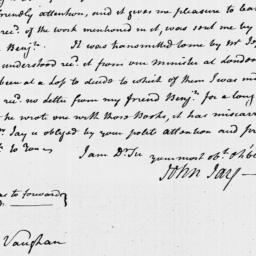 friendly attention, and it gives me pleasure to
recd. of the work mentioned in it, was sent me by
Benjn. It was transmitted to me by Mr. J
understood recd. it from our Minister at London
been at a Loss to decide to which of them I was in
recd. no letter from my friend Benjn. for a long
he wrote one with those Books, it has miscar
Jay is obliged by your polite attention and
to you
I am Dr. Sir your most obt. &
John Jay
to forward
Vaughan